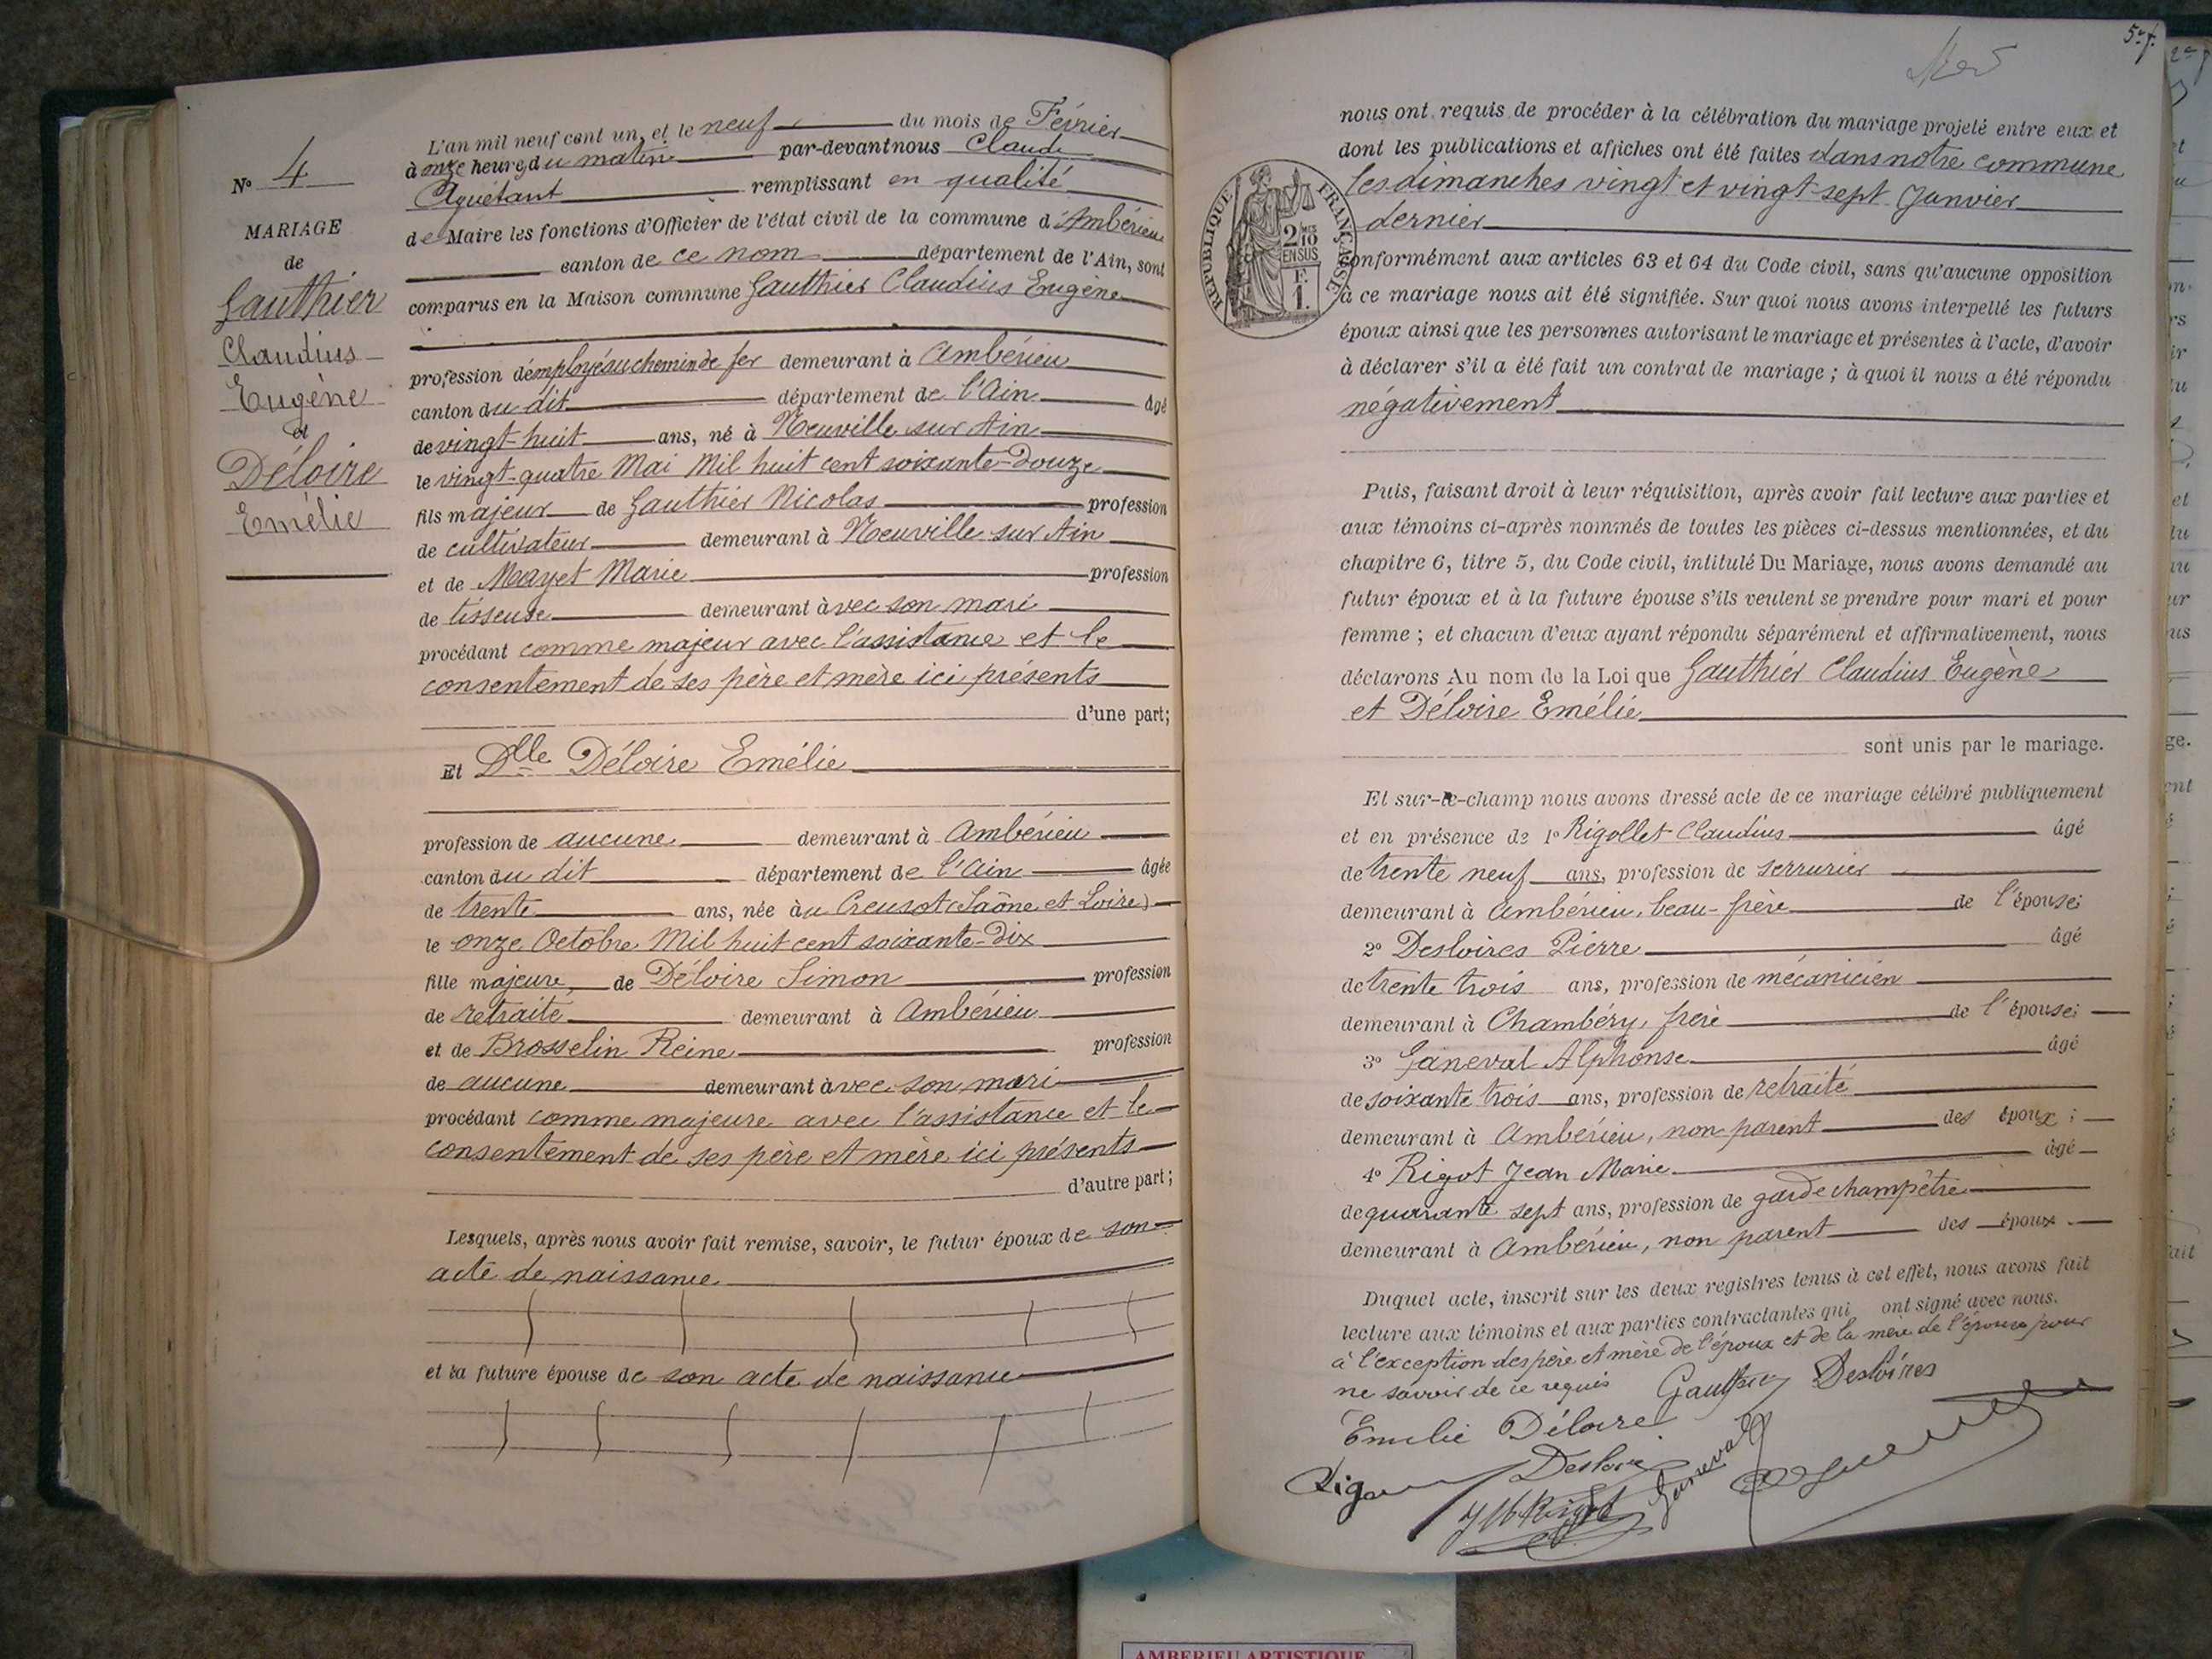 N° 4
MARIAGE
de
Gauthier
Claudius
Eugène
et
Déloire
Emélie
L'an mil neuf cent un, et le neuf du mois de Février
à onze heures du matin par-devant nous Claude
Aguétant remplissant en qualité
de Maire les fonctions d'Officier de l'état civil de la commune d'Ambérieu
canton de ce nom département de l'Ain, sont
comparus en la Maison commune Gauthier Claudius Eugène
profession d'employé au chemin de fer demeurant à Ambérieu
canton du dit département de l'Ain âgé
de vingt-huit ans, né à Neuville sur Ain
le vingt-quatre Mai Mil huit cent soixante-Douze
fils majeur de Gauthier Nicolas profession
de cultivateur demeurant à Neuville sur Ain
et de Mayet Marie profession
de tisseuse demeurant avec son mari
procédant comme majeur avec l'assistance et le
consentement de ses père et mère ici présents
d'une part;
Et Dlle Déloire Emélie
profession de aucune demeurant à Ambérieu
canton du dit département de l'Ain âgée
de trente ans, née au Creusot (Saône et Loire)
le onze Octobre Mil huit cent soixante-Dix
fille majeure, de Déloire Simon profession
de retraité demeurant à Ambérieu
et de Brosselin Reine profession
de aucune demeurant avec son mari
procédant comme majeure avec l'assistance et le
consentement de ses père et mère ici présents
d'autre part;
Lesquels, après nous avoir fait remise, savoir, le futur époux de son
acte de naissance
et la future épouse de son acte de naissance
5e f.
RÉPUBLIQUE FRANÇAISE
2/10 EN SUS
F. 1.
nous ont requis de procéder à la célébration du mariage projeté entre eux et
dont les publications et affiches ont été faites dans notre commune
les dimanches vingt et vingt-sept Janvier
dernier
conformément aux articles 63 et 64 du Code civil, sans qu'aucune opposition
à ce mariage nous ait été signifiée. Sur quoi nous avons interpellé les futurs
époux ainsi que les personnes autorisant le mariage et présentes à l'acte, d'avoir
à déclarer s'il a été fait un contrat de mariage ; à quoi il nous a été répondu
négativement
Puis, faisant droit à leur réquisition, après avoir fait lecture aux parties et
aux témoins ci-après nommés de toutes les pièces ci-dessus mentionnées, et du
chapitre 6, titre 5, du Code civil, intitulé Du Mariage, nous avons demandé au
futur époux et à la future épouse s'ils veulent se prendre pour mari et pour
femme ; et chacun d'eux ayant répondu séparément et affirmativement, nous
déclarons Au nom de la Loi que Gauthier Claudius Eugène
et Déloire Emélie
sont unis par le mariage.
Et sur-le-champ nous avons dressé acte de ce mariage célébré publiquement
et en présence de 1° Rigollet Claudius âgé
de trente neuf ans, profession de serrurier
demeurant à Ambérieu, beau-frère de l'épouse;
2° Desloires Pierre âgé
de trente trois ans, profession de mécanicien
demeurant à Chambéry, frère de l'épouse;
3° Ganeval Alphonse âgé
de soixante trois ans, profession de retraité
demeurant à Ambérieu, non parent des époux ;
4° Rigot Jean Marie âgé
de quarante sept ans, profession de garde champêtre
demeurant à Ambérieu, non parent des époux.
Duquel acte, inscrit sur les deux registres tenus à cet effet, nous avons fait
lecture aux témoins et aux parties contractantes qui ont signé avec nous.
à l'exception des père et mère de l'époux et de la mère de l'épouse pour
ne savoir de ce requis Gauthier Desloires
Emelie Déloire
Desloire Ganeval
JM Rigot
AMBERIEU ARTISTIQUE